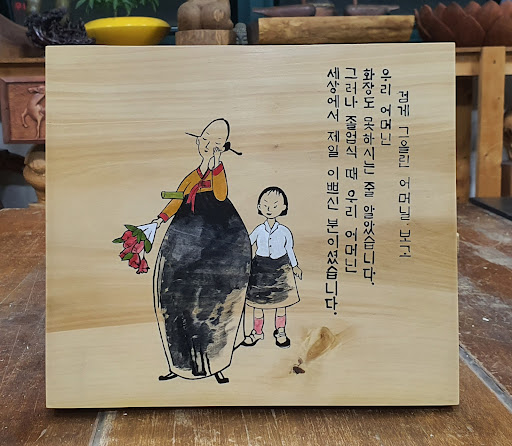 검게 그을린 어머닐 보고
우리 어머닌
화장도 못하시는 줄 알았습니다.
그러나 졸업식 때 우리 어머닌
세상에서 제일 이쁘신 분이셨습니다.